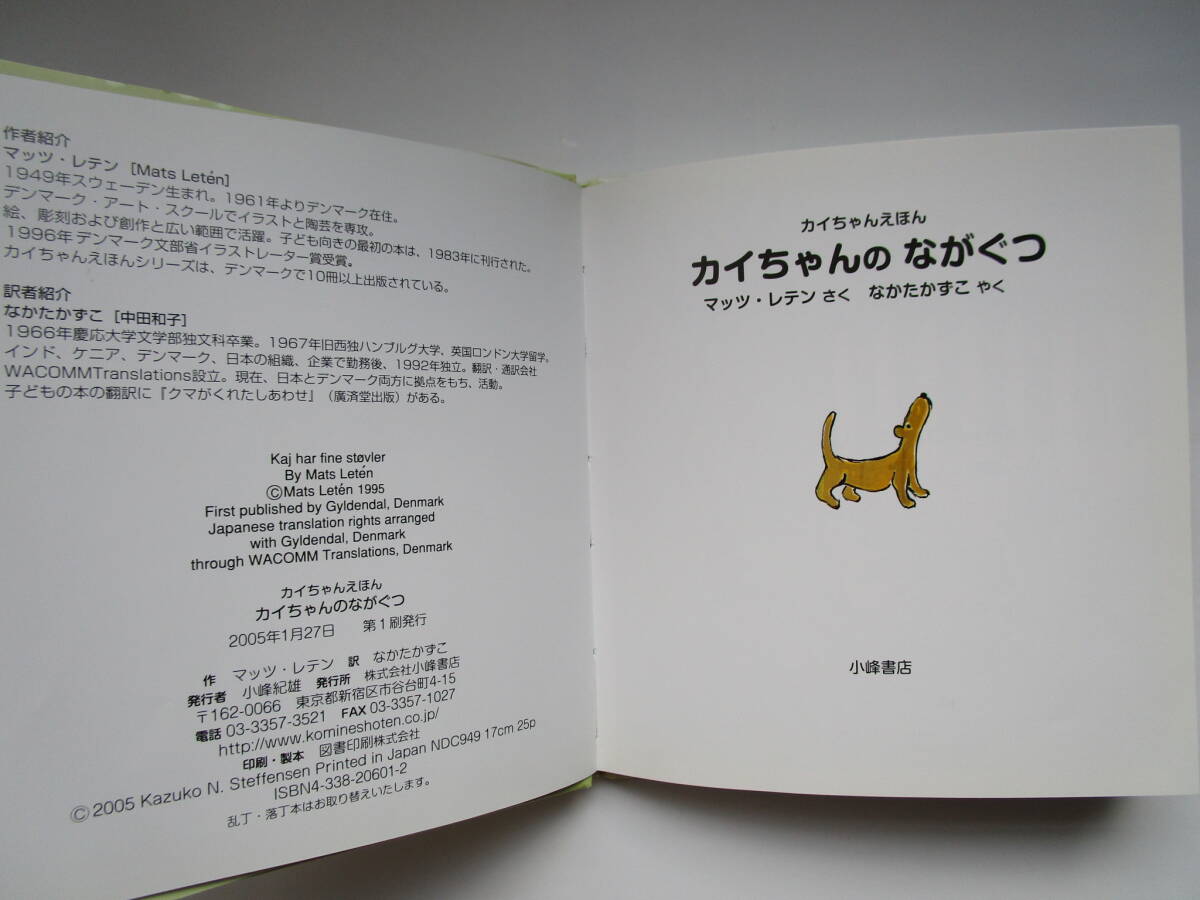 作者紹介
マッツ・レテン [Mats Letén]
1949年スウェーデン生まれ。1961年よりデンマーク在住。
デンマーク・アート・スクールでイラストと陶芸を専攻。
絵、彫刻および創作と広い範囲で活躍。子ども向きの最初の本は、1983年に刊行された。
1996年 デンマーク文部省イラストレーター賞受賞。
カイちゃんえほんシリーズは、デンマークで10冊以上出版されている。
訳者紹介
なかたかずこ [中田和子]
1966年慶応大学文学部独文科卒業。1967年旧西独ハンブルグ大学、英国ロンドン大学留学。
インド、ケニア、デンマーク、日本の組織、企業で勤務後、1992年独立。翻訳・通訳会社
WACOMMTranslations設立。現在、日本とデンマーク両方に拠点をもち、活動。
子どもの本の翻訳に『クマがくれたしあわせ』(廣済堂出版)がある。
Kaj har fine støvler
By Mats Letén
©Mats Letén 1995
First published by Gyldendal, Denmark
Japanese translation rights arranged
with Gyldendal, Denmark
through WACOMM Translations, Denmark
カイちゃんえほん
カイちゃんのながぐつ
2005年1月27日 第1刷発行
作 マッツ・レテン 訳 なかたかずこ
発行者 小峰紀雄 発行所 株式会社小峰書店
〒162-0066 東京都新宿区市谷台町4-15
電話 03-3357-3521 FAX 03-3357-1027
http://www.komineshoten.co.jp/
印刷・製本 図書印刷株式会社
©2005 Kazuko N. Steffensen Printed in Japan NDC949 17cm 25p
ISBN4-338-20601-2
乱丁・落丁本はお取り替えいたします。
カイちゃんえほん
カイちゃんの ながぐつ
マッツ・レテン さく なかたかずこ やく
小峰書店